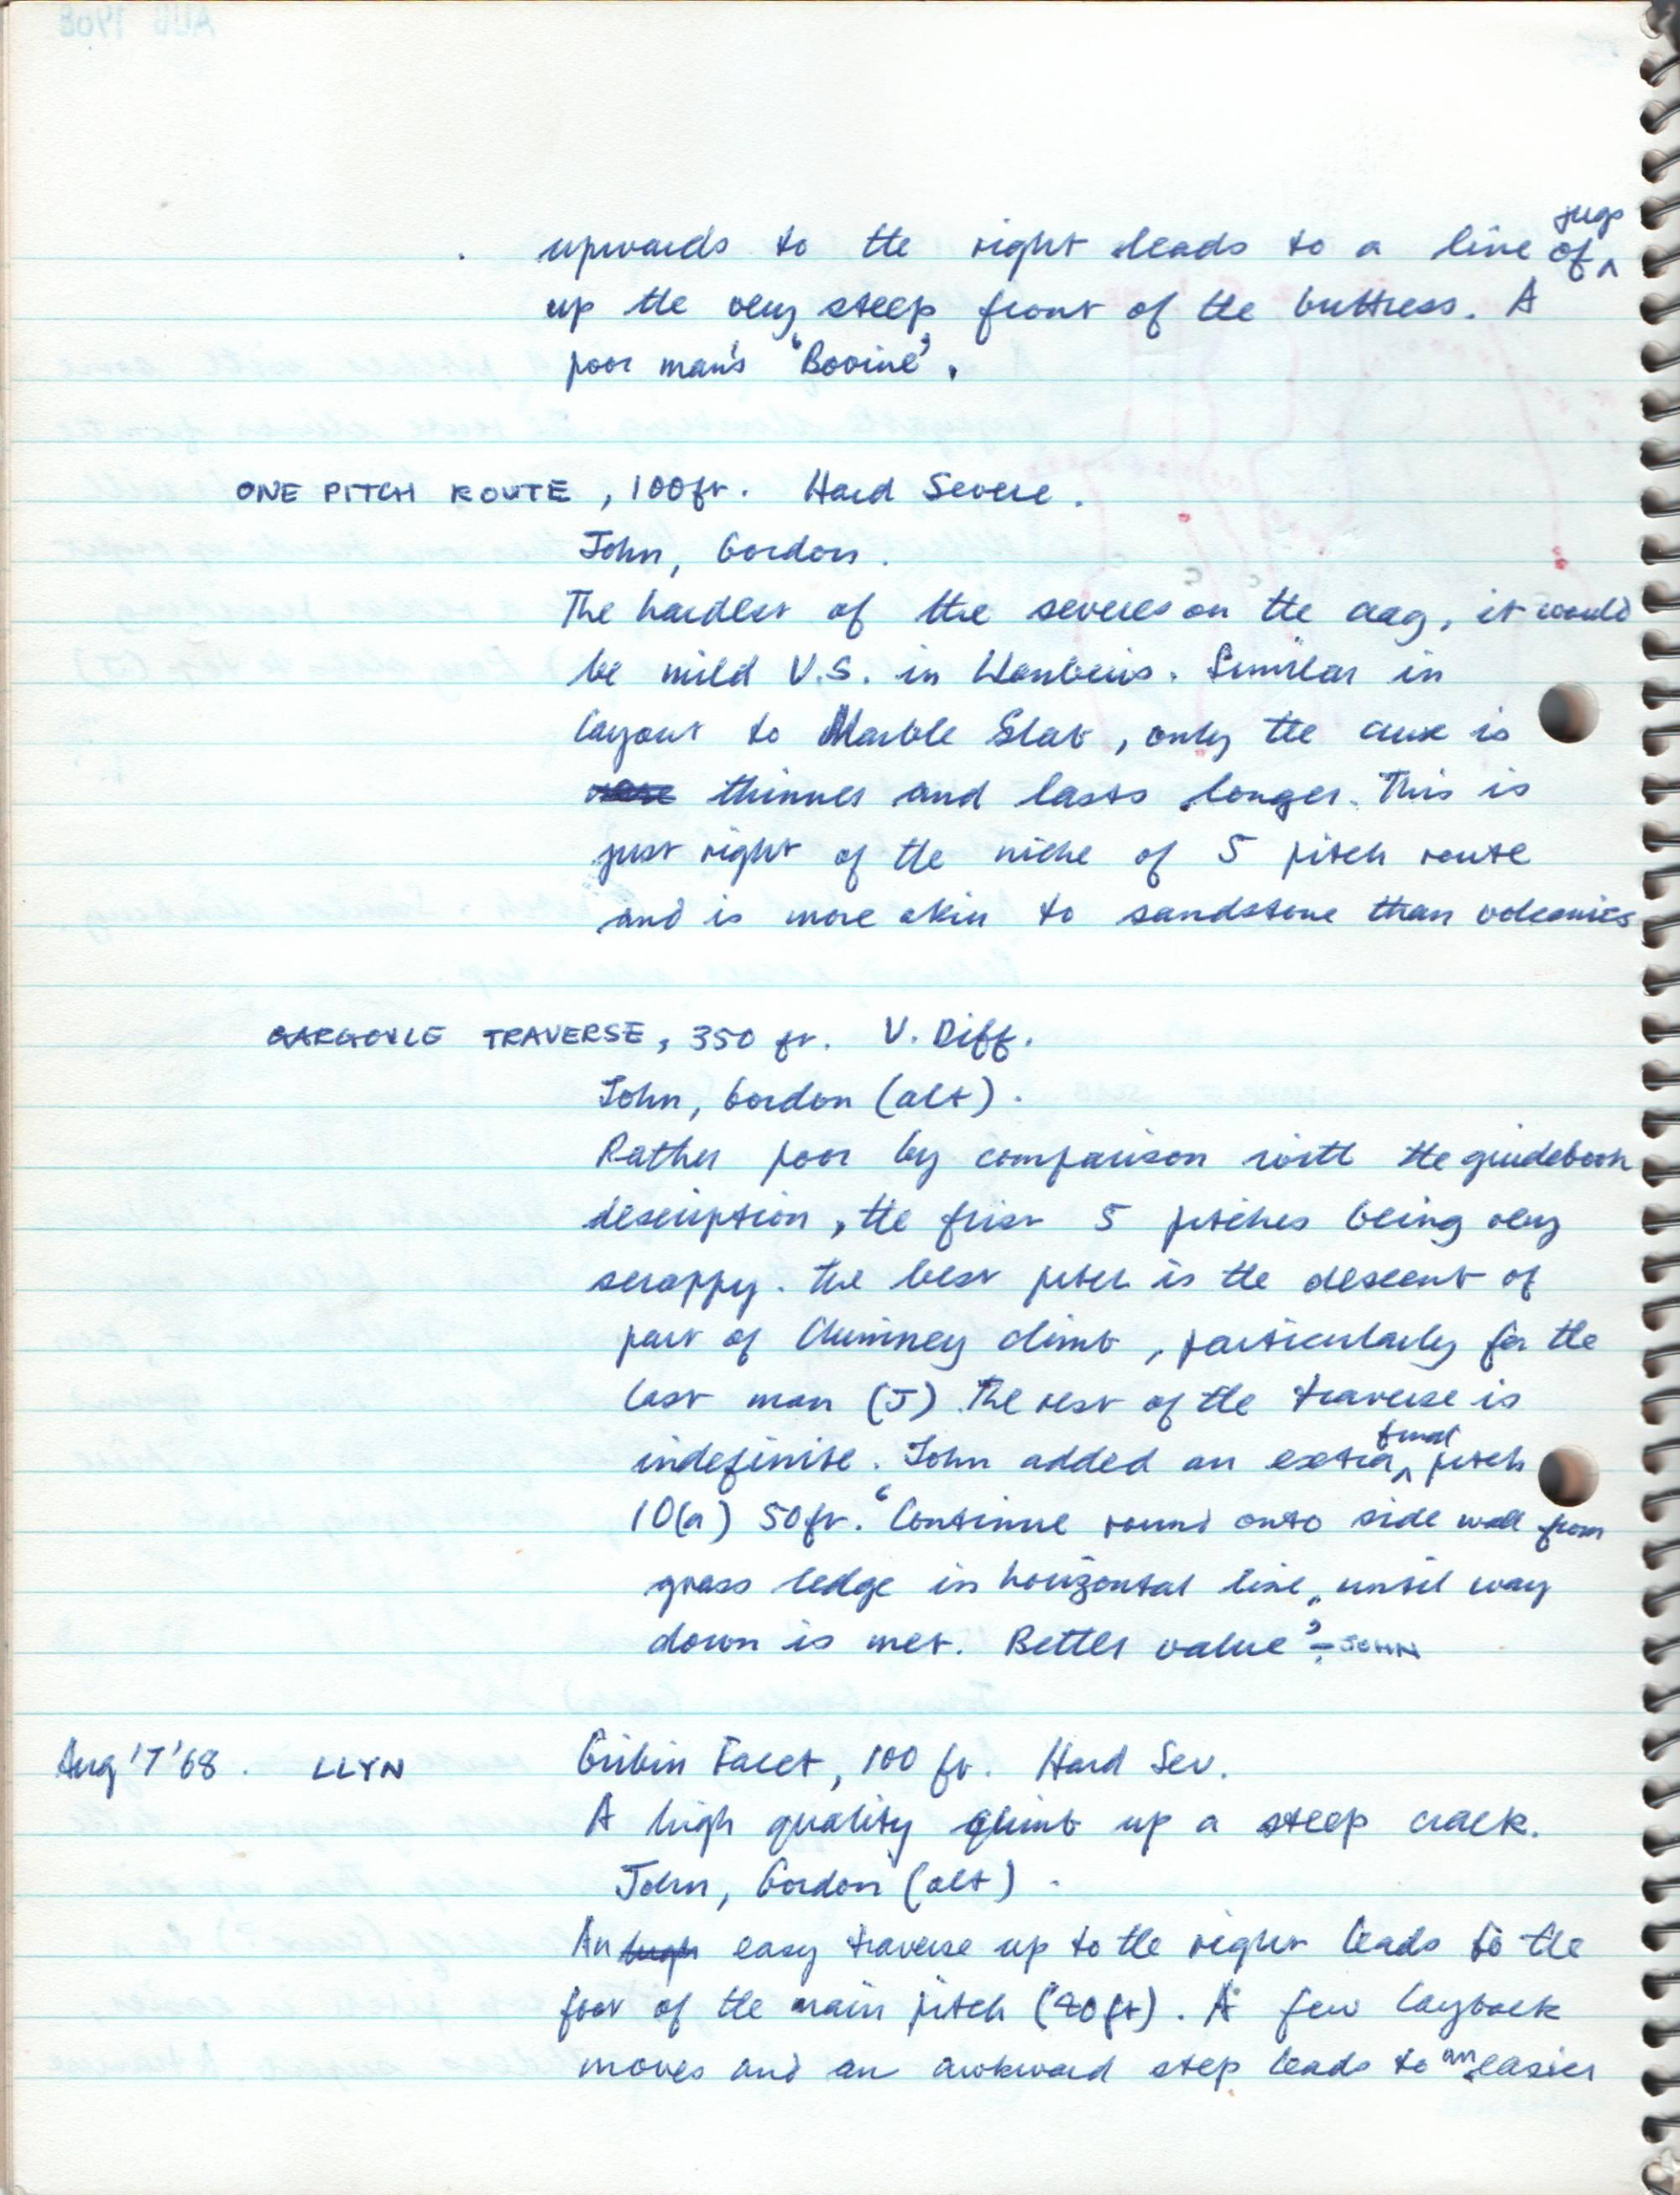 jugs
upwards to the right leads to a line of ^
up the very steep front of the buttress. A
poor man's 'Bovine'.
ONE PITCH ROUTE, 100ft. Hard Severe.
John, Gordon.
The hardest of the severes on the crag, it would
be mild V.S. in Llanberis. Similar in
layout to Marble Slab, only the crux is
thinner and lasts longer. This is
just right of the niche of 5 pitch route
and is more akin to sandstone than volcanics
GARGOYLE TRAVERSE, 350 ft. V. Diff.
John, Gordon (alt).
Rather poor by comparison with the guidebook
description, the first 5 pitches being very
scrappy. The best pitch is the descent of
part of Chimney climb, particularly for the
last man (J) The rest of the traverse is
final
indefinite. John added an extra ^ pitch
10(a) 50ft. 'Continue round onto side wall from
grass ledge in horizontal line, until way
down is met. Better value' - JOHN
Aug '7 '68. LLYN Gribin Facet, 100 ft. Hard Sev.
A high quality climb up a steep crack.
John, Gordon (alt).
An easy traverse up to the right leads to the
foot of the main pitch (90ft). A few layback
moves and an awkward step leads to an easier